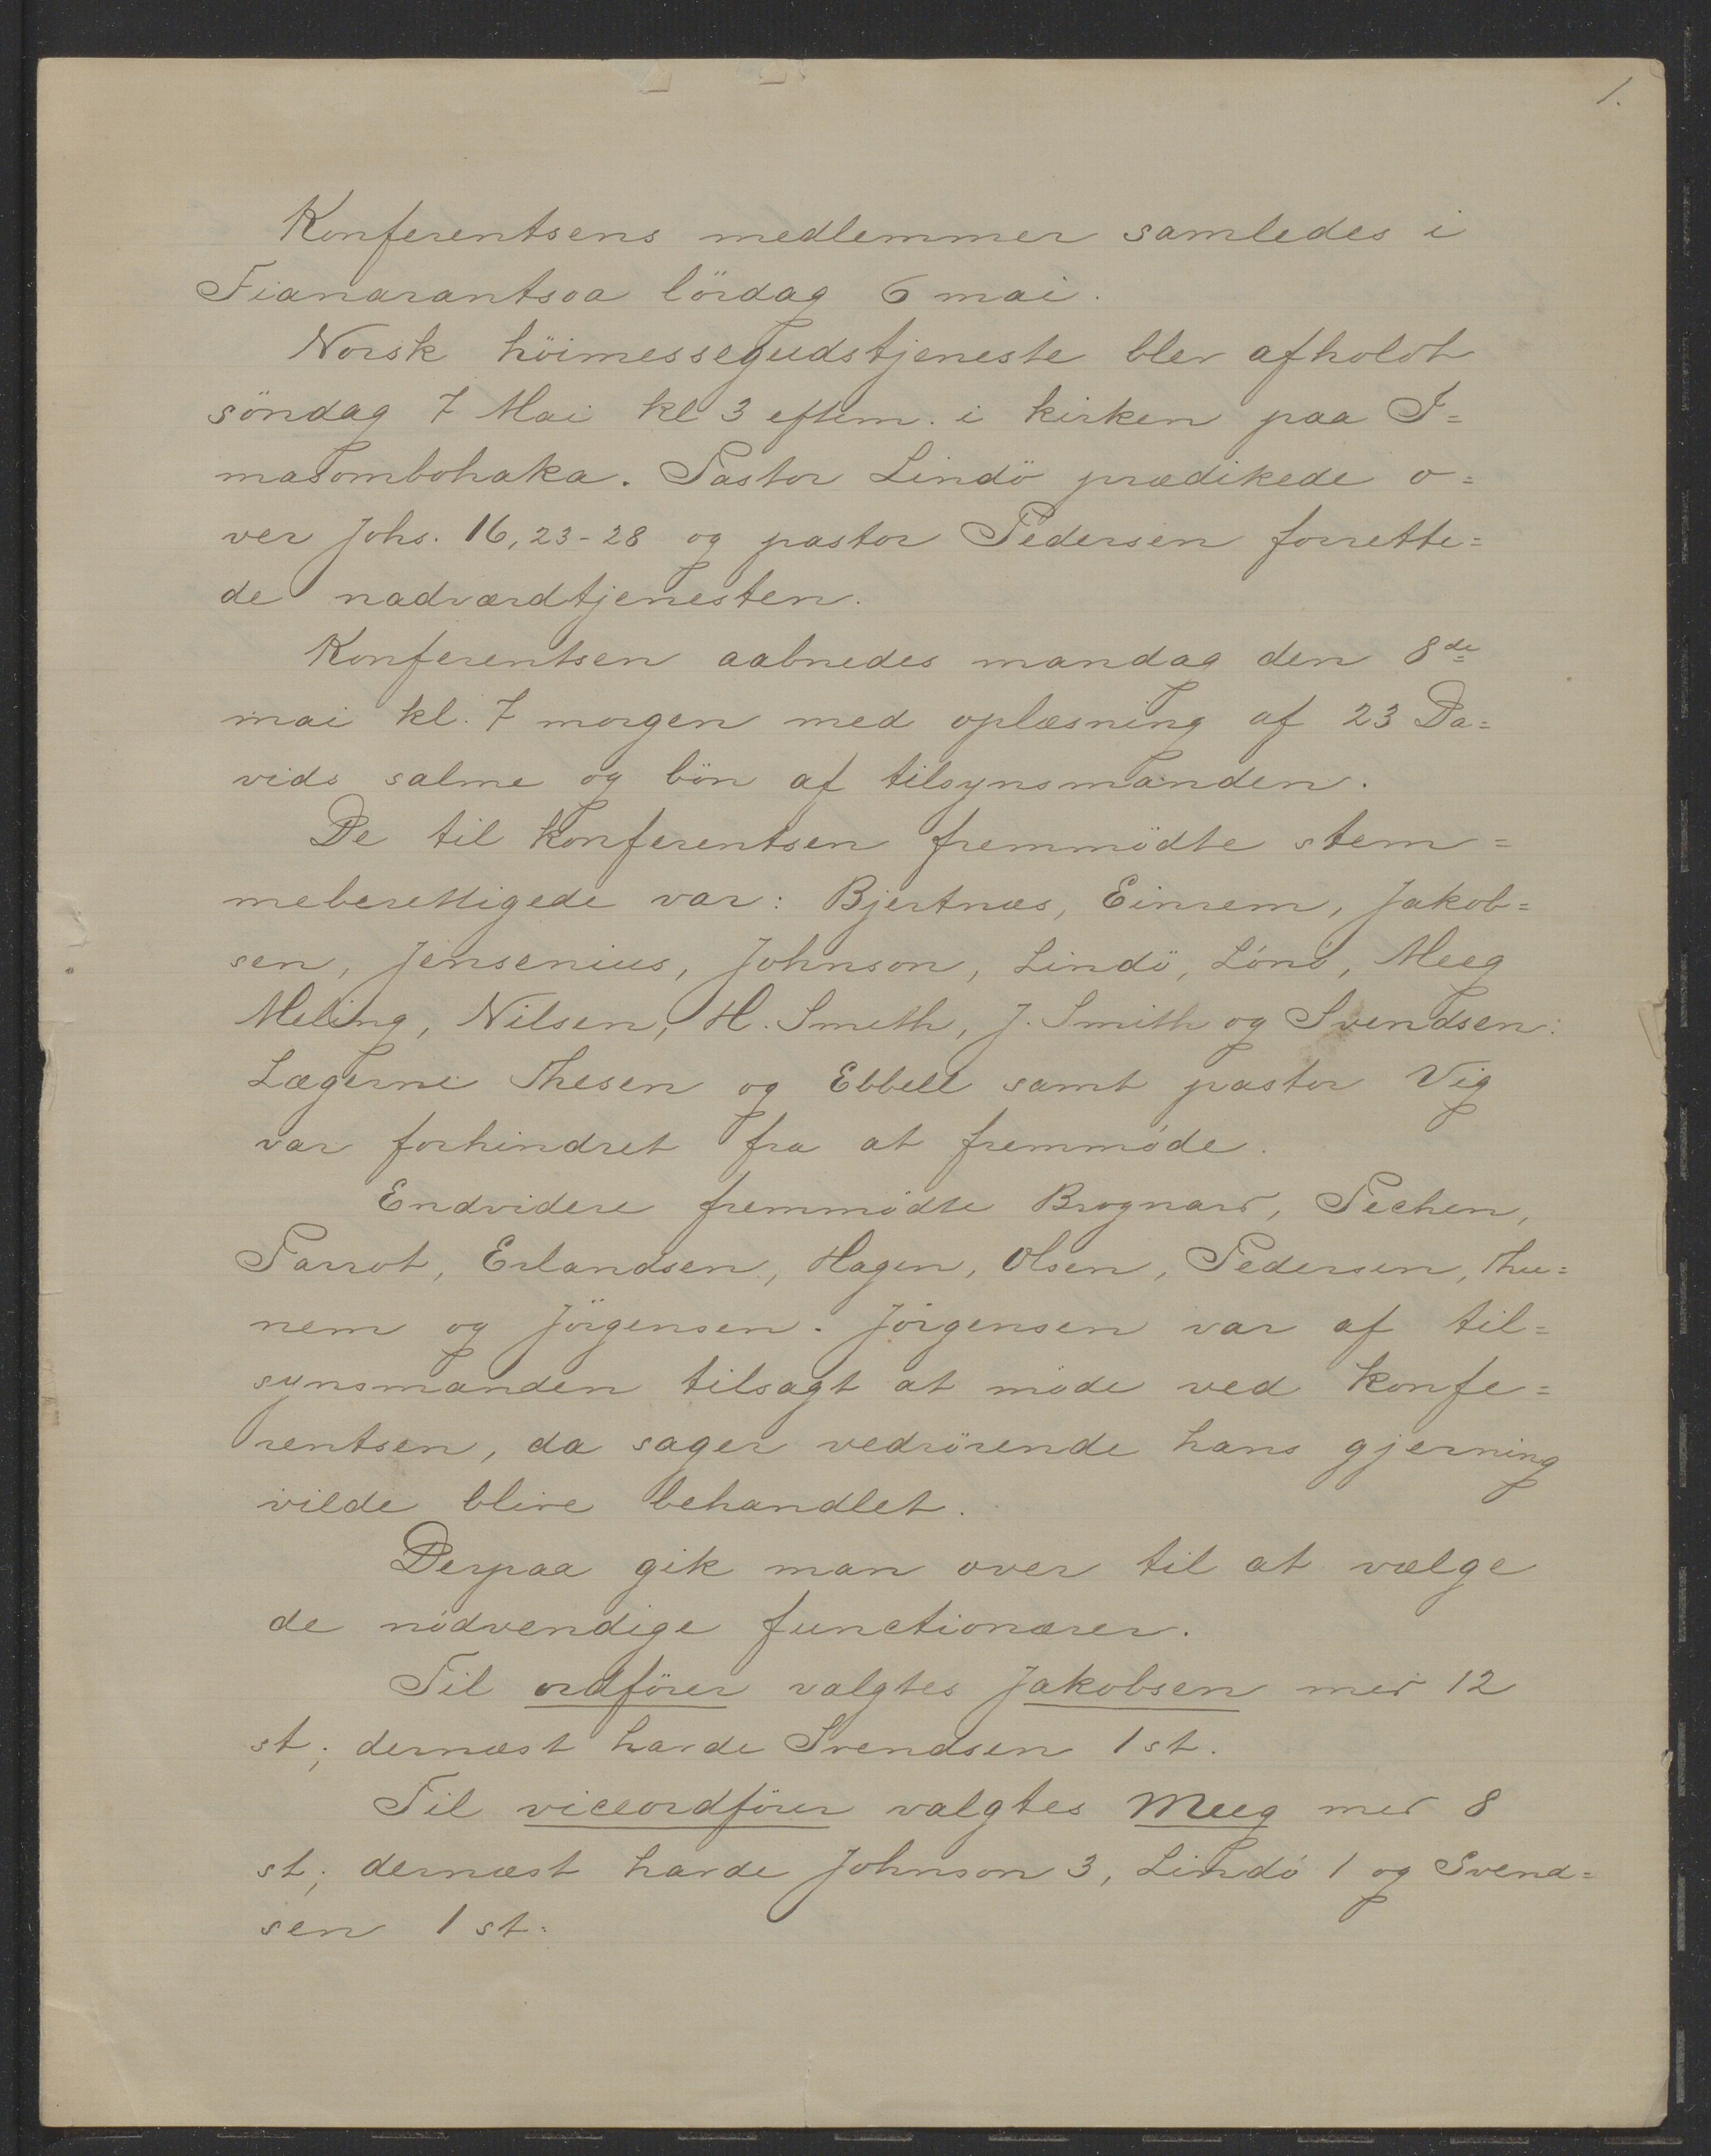 1.
Konferentsens medlemmer samledes i
Fianarantsoa lördag 6 mai.
Norsk höimessegudstjeneste blev afholdt
söndag 7 Mai kl 3 eftem. i kirken paa I=
masombohaka. Pastor Lindö prædikede o=
ver Johs. 16, 23-28 og pastor Pedersen forrette=
de nadværdtjenesten.
Konferentsen aabnedes mandag den 8de
mai kl. 7 morgen med oplæsning af 23 Da=
vids salme og bön af tilsynsmanden.
De til konferentsen fremmödte stem=
meberettigede var: Bjertnæs, Einrem, Jakob=
sen, Jensenius, Johnson, Lindö, Lönö, Meeg
Meling, Nilsen, H. Smith, J. Smith og Svendsen:
Lægerne Thesen og Ebbell samt pastor Vig
var forhindret fra at fremmöde.
Endvidere fremmödte Brognard, Pechen,
Parrot, Erlandsen, Hagen, Olsen, Pedersen, Thu=
nem og Jörgensen. Jörgensen var af til=
synsmanden tilsagt at möde ved konfe=
rentsen, da sager vedrörende hans gjerning
vilde blive behandlet.
Derpaa gik man over til at vælge
de nödvendige functionærer.
Til ordförer valgtes Jakobsen med 12
st; dernæst havde Svendsen 1 st.
Til viceordförer valgtes Meeg med 8
st; dernæst havde Johnson 3, Lindö 1 og Svend=
sen 1 st.